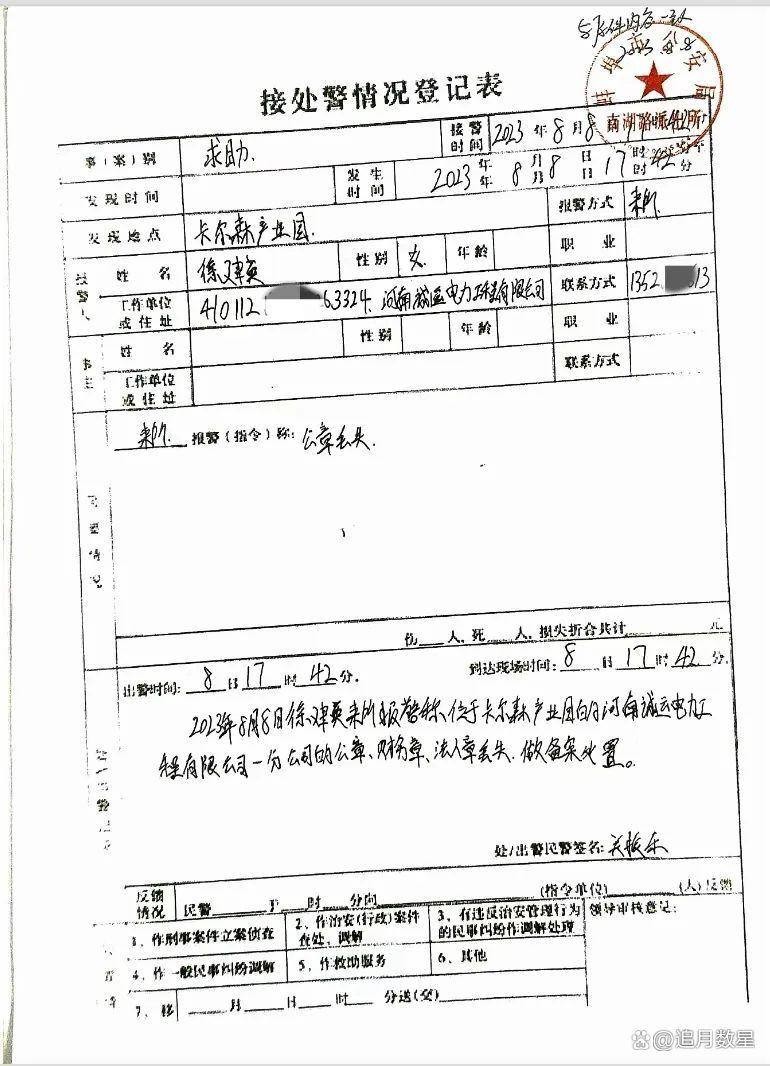 与原件内容一致
2023.8.8
蚌埠市公安局
南湖路派出所
接处警情况登记表
事(案)别 求助. 接警时间 2023年8月8日17时42分
发现时间 发生时间 2023年8月8日17时42分
发现地点 卡尔森产业园. 报警方式 来所.
报警人 姓名 性别 女 年龄 职业
工作单位或住址 410112 63324. 河南诚运电力工程有限公司 联系方式 1352 13
事主 姓名 性别 年龄 职业
工作单位或住址 联系方式
来所. 报警(指令)称: 公章丢失.
伤 人,死 人,损失折合共计 元
出警时间: 8日17时42分. 到达现场时间: 8日17时42分.
2023年8月8日徐 英来所报警称,位于卡尔森产业园的河南诚运电力工
程有限公司一分公司的公章、财务章、法人章丢失.做备案处置。
处/出警民警签名:
反馈情况 民警 于 时 分向 (指令单位) (人)反馈
1、作刑事案件立案侦查 2、作治安(行政)案件查处、调解 3、有违反治安管理行为的民事纠纷作调解处理 领导审核意见:
4、作一般民事纠纷调解 5、作救助服务 6、其他
7、移 月 日 时 分送(交)
追月数星